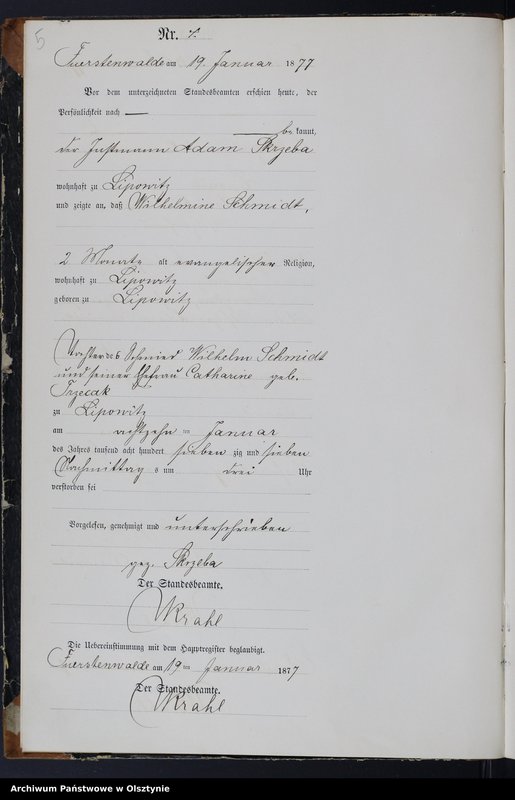 5
Nr.
Fuerstenwalde am 19. Januar 1877
Vor dem unterzeichneten Standesbeamten erschien heute, der
Persönlichkeit nach
be kannt,
der Instmann Adam Skrzeba
wohnhaft zu Lipowitz
und zeigte an, daß Wilhelmine Schmidt,
2 Monate alt evangelischer Religion,
wohnhaft zu Lipowitz
geboren zu Lipowitz
Tochter des Schmied Wilhelm Schmidt
und seiner Ehefrau Catharine geb.
Trzecak
zu Lipowitz
am achtzehn ten Januar
des Jahres tausend acht hundert sieben zig und sieben
Nachmittag s um drei Uhr
verstorben sei
Vorgelesen, genehmigt und unterschrieben
gez. Skrzeba
Der Standesbeamte.
Krahl
Die Uebereinstimmung mit dem Hauptregister beglaubigt.
Fuerstenwalde am 19 ten Januar 1877
Der Standesbeamte.
Krahl
Archiwum Państwowe w Olsztynie